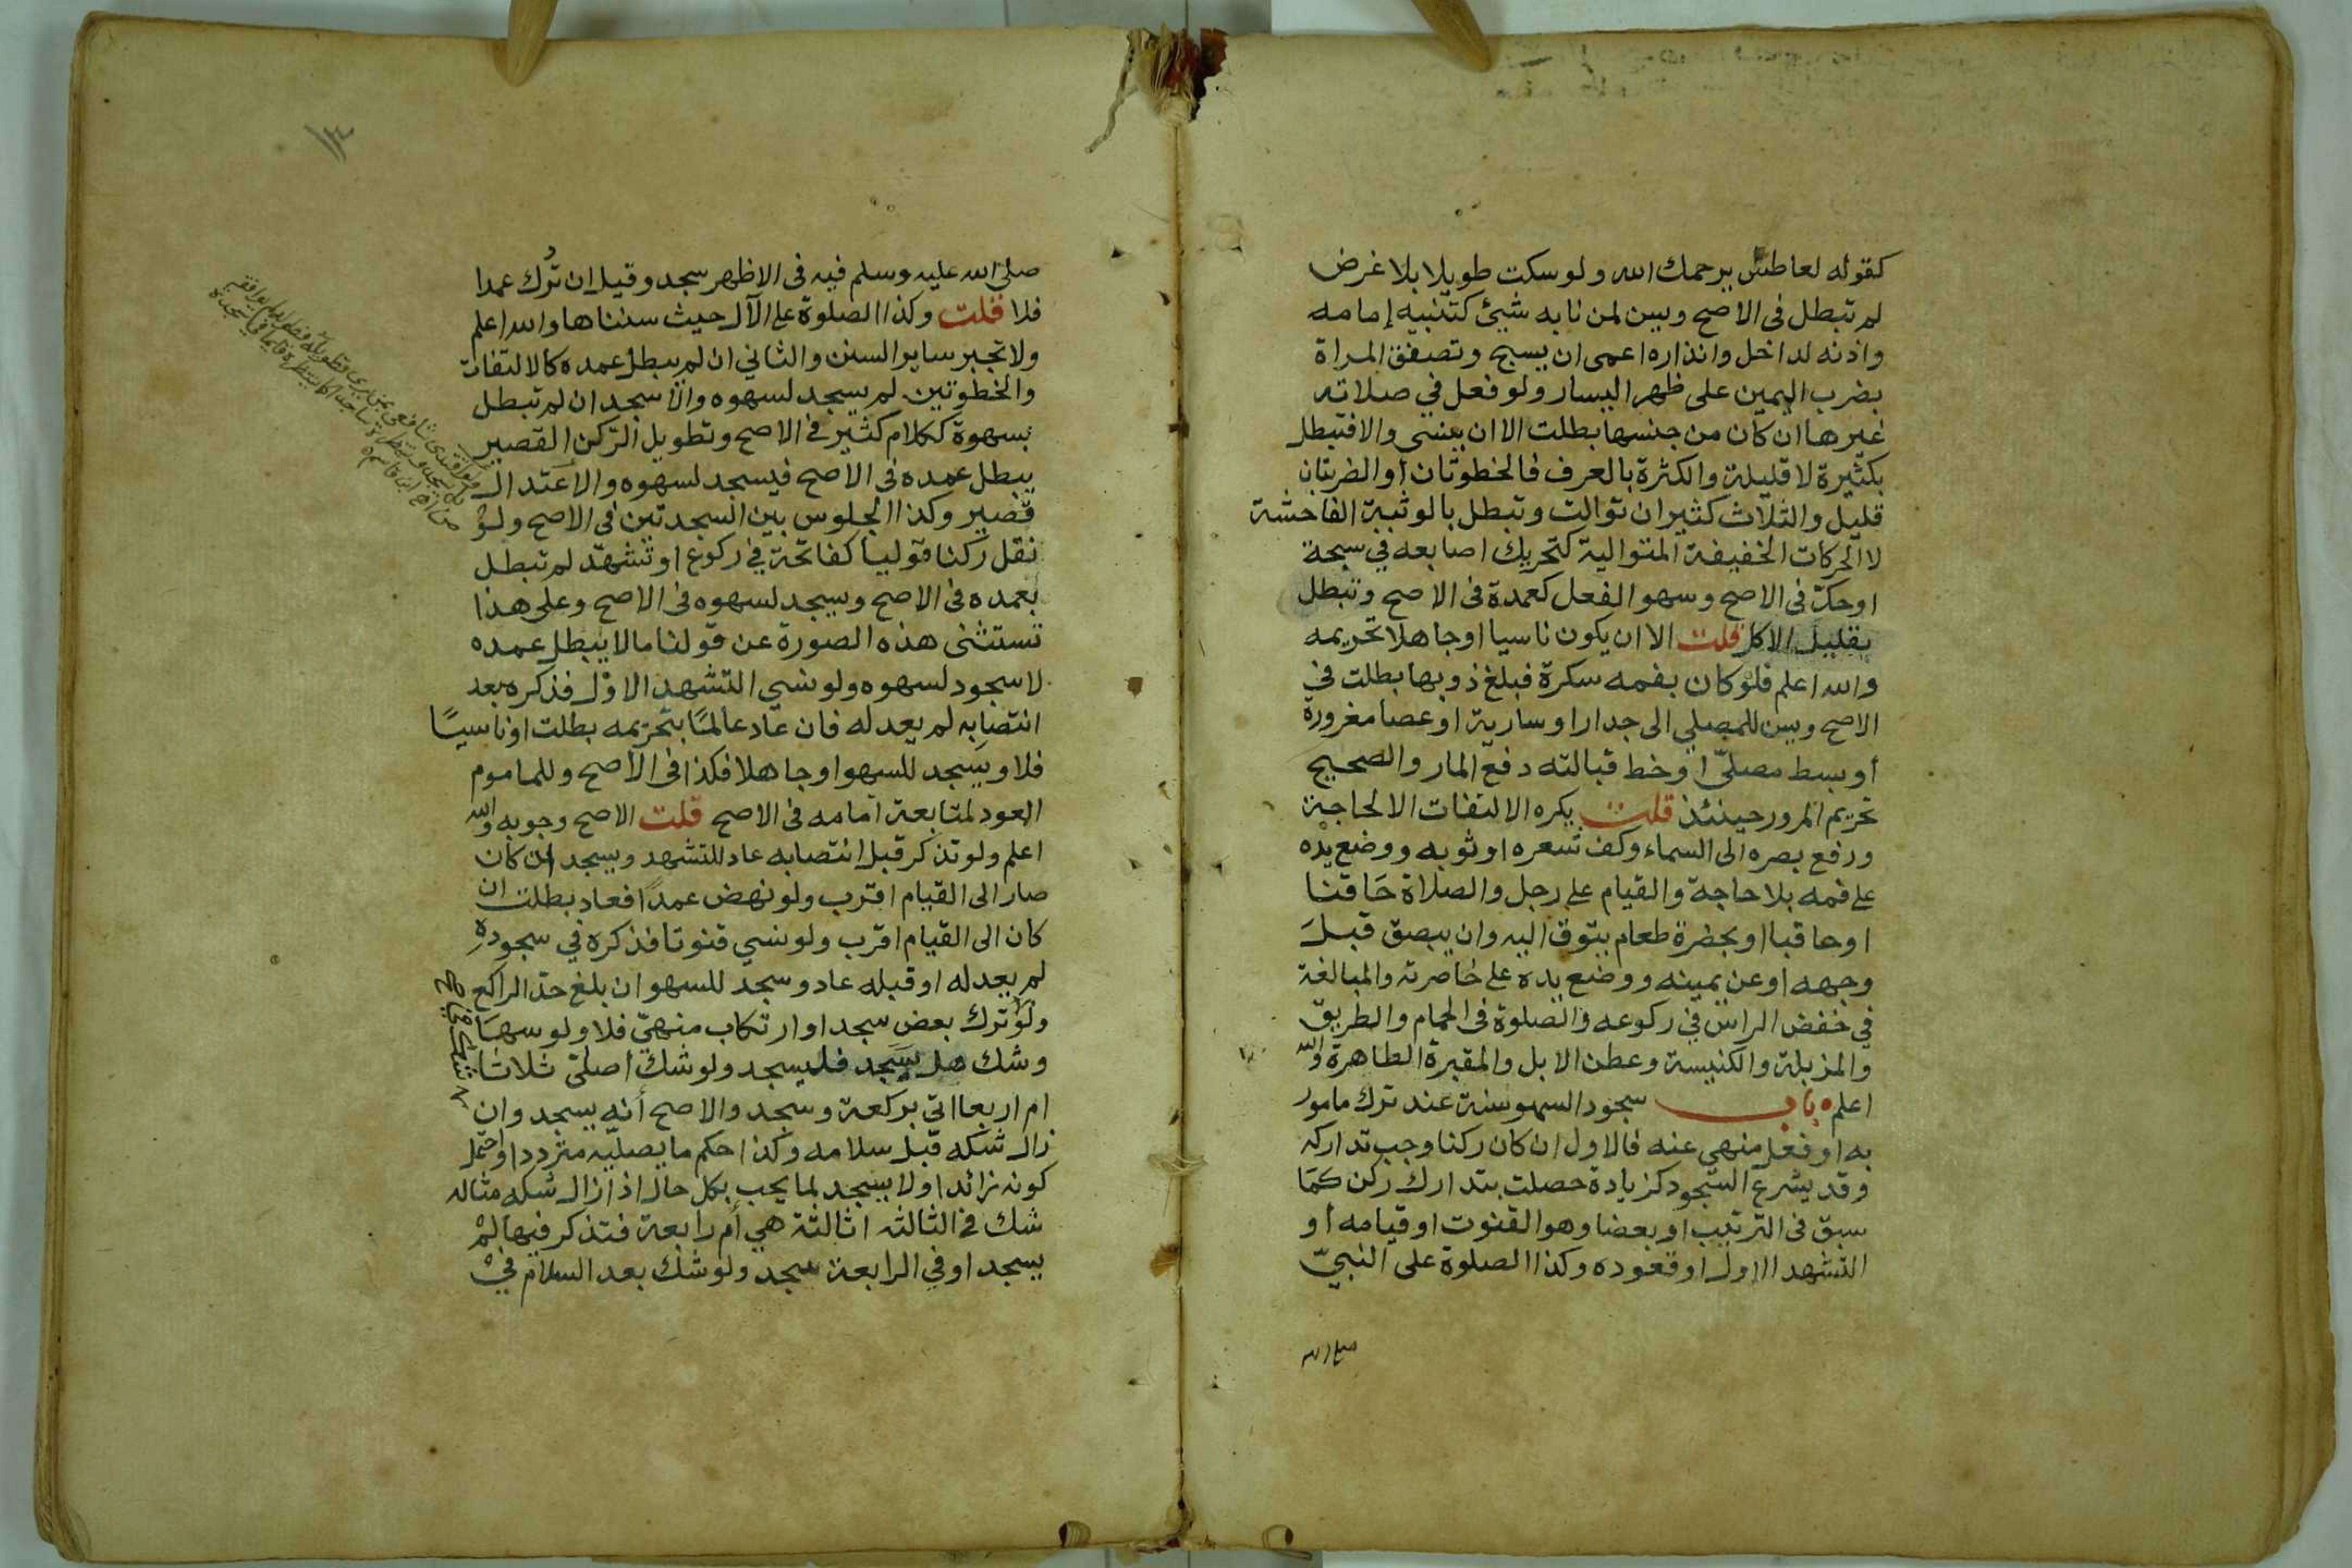 كقوله لعاطس يرحمك الله ولو سكت طويلا بلا غرض
لم تبطل فى الاصح ويسن لمن نابه شيئ كتنبيه إمامه
واذنه لداخل وانذاره اعمى ان يسبح وتصفق المراة
بضرب اليمين على ظهر اليسار ولو فعل في صلاته
غيرها ان كان من جنسها بطلت الا ان ينسى والا فتبطل
بكثيرة لا قليلة والكثرة بالعرف فالخطوتان أو الضربتان
قليل والثلاث كثير ان توالت وتبطل بالوثبة الفاحشة
لا الحركات الخفيفة المتوالية كتحريك اصابعه في سبحة
او حكّ فى الاصح وسهو الفعل كعمدة فى الاصح وتبطل
بقليل الاكل قلت الا ان يكون ناسيا او جاهلا تحريمه
والله اعلم فلو كان بفمه سكرة فبلغ ذوبها بطلت في
الاصح ويسن للمصلي الى جدار او سارية او عصا مغروزة
أو بسط مصلّى او خط قبالته دفع المار والصحيح
تحريم المرور حينئذ قلت يكره الالتفات الا لحاجة
ورفع بصره الى السماء وكف شعره او ثوبه ووضع يده
على فمه بلا حاجة والقيام على رجل والصلاة حَاقنا
او حاقبا او بحضرة طعام يتوق اليه وان يبصق قبلَ
وجهه او عن يمينه ووضع يده على خاصرته والمبالغة
في خفض الراس في ركوعه والصلوة فى الحمام والطريق
والمزبلة والكنيسة وعطن الابل والمقبرة الطاهرة والله
اعلم ه باب سجود السهو سنة عند ترك مامور
به او فعل منهي عنه فالاول ان كان ركنا وجب تداركه
وقد يشرع السجود كزيادة حصلت بتدارك ركن كمَا
سبق فى الترتيب او بعضا وهو القنوت او قيامه أو
التشهد الاول او قعوده وكذا الصلوة على النبيّ
صلى الله
صلى الله عليه وسلم فيه فى الاظهر سجد وقيل ان تُرك عمدا
فلا قلت وكذا الصلوة على الآل حيث سنناها والله اعلم
ولا تجبر ساير السنن والثاني ان لم يبطل عمده كالالتفات
والخطوتين لم يسجد لسهوه والا سجد ان لم تبطل
بسهوة ككلام كثير في الاصح وتطويل الركن القصير
يبطل عمده فى الاصح فيسجد لسهوه والاعتدال
قصير وكذا الجلوس بين السجدتين فى الاصح ولو
نقل ركنا قوليا كفاتحة في ركوع او تشهد لم تبطل
بعمده فى الاصح ويسجد لسهوه فى الاصح وعلى هذا
تستثنى هذه الصورة عن قولنا ما لا يبطل عمده
لا سجود لسهوه ولو نسي التشهد الاول فذكره بعد
انتصابه لم يعد له فان عاد عالمًا بتحريمه بطلت او ناسيًا
فلا ويسجد للسهو او جاهلا فكذا فى الأصح وللماموم
العود لمتابعة امامه فى الاصح قلت الاصح وجوبه والله
اعلم ولو تذكر قبل انتصابه عاد للتشهد ويسجد ان كان
صار الى القيام اقرب ولو نهض عمدًا فعاد بطلت ان
كان الى القيام اقرب ولو نسي قنوتا فذكره في سجودهِ
لم يعد له او قبله عاد وسجد للسهو ان بلغ حدّ الراكع
ولو ترك بعض سجد او ارتكاب منهيّ فلا ولو سهَا
وشك هل سجد فليسجد ولو شك أصلّى ثلاثا
ام اربعا اتى بركعة وسجد والاصح أنه يسجد وان
زال شكه قبل سلامه وكذا حكم ما يصليه مترددا واحتمل
كونه زائدا ولا يسجد لما يجب بكل حال اذا زال شكه مثاله
شك في الثالثه اثالثة هي أم رابعة فتذكر فيها لم
يسجد او في الرابعة سجد ولو شك بعد السلام في